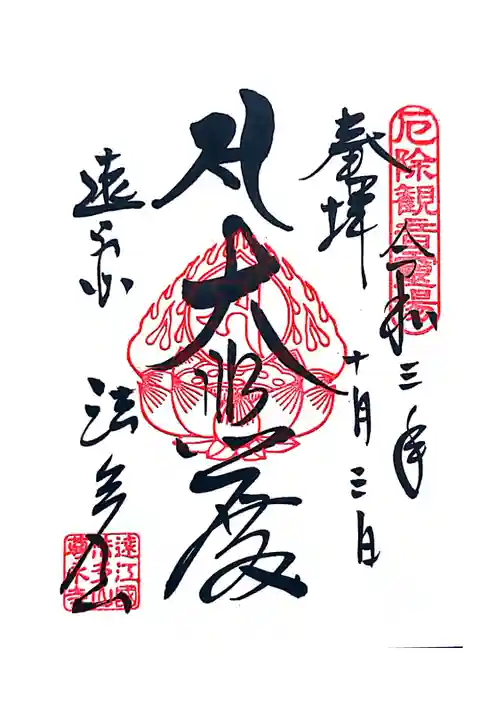 厄除観音霊場
奉拝
令和三年
十月三日
大悲殿
遠州
法多山
遠江國
法多山
尊永寺